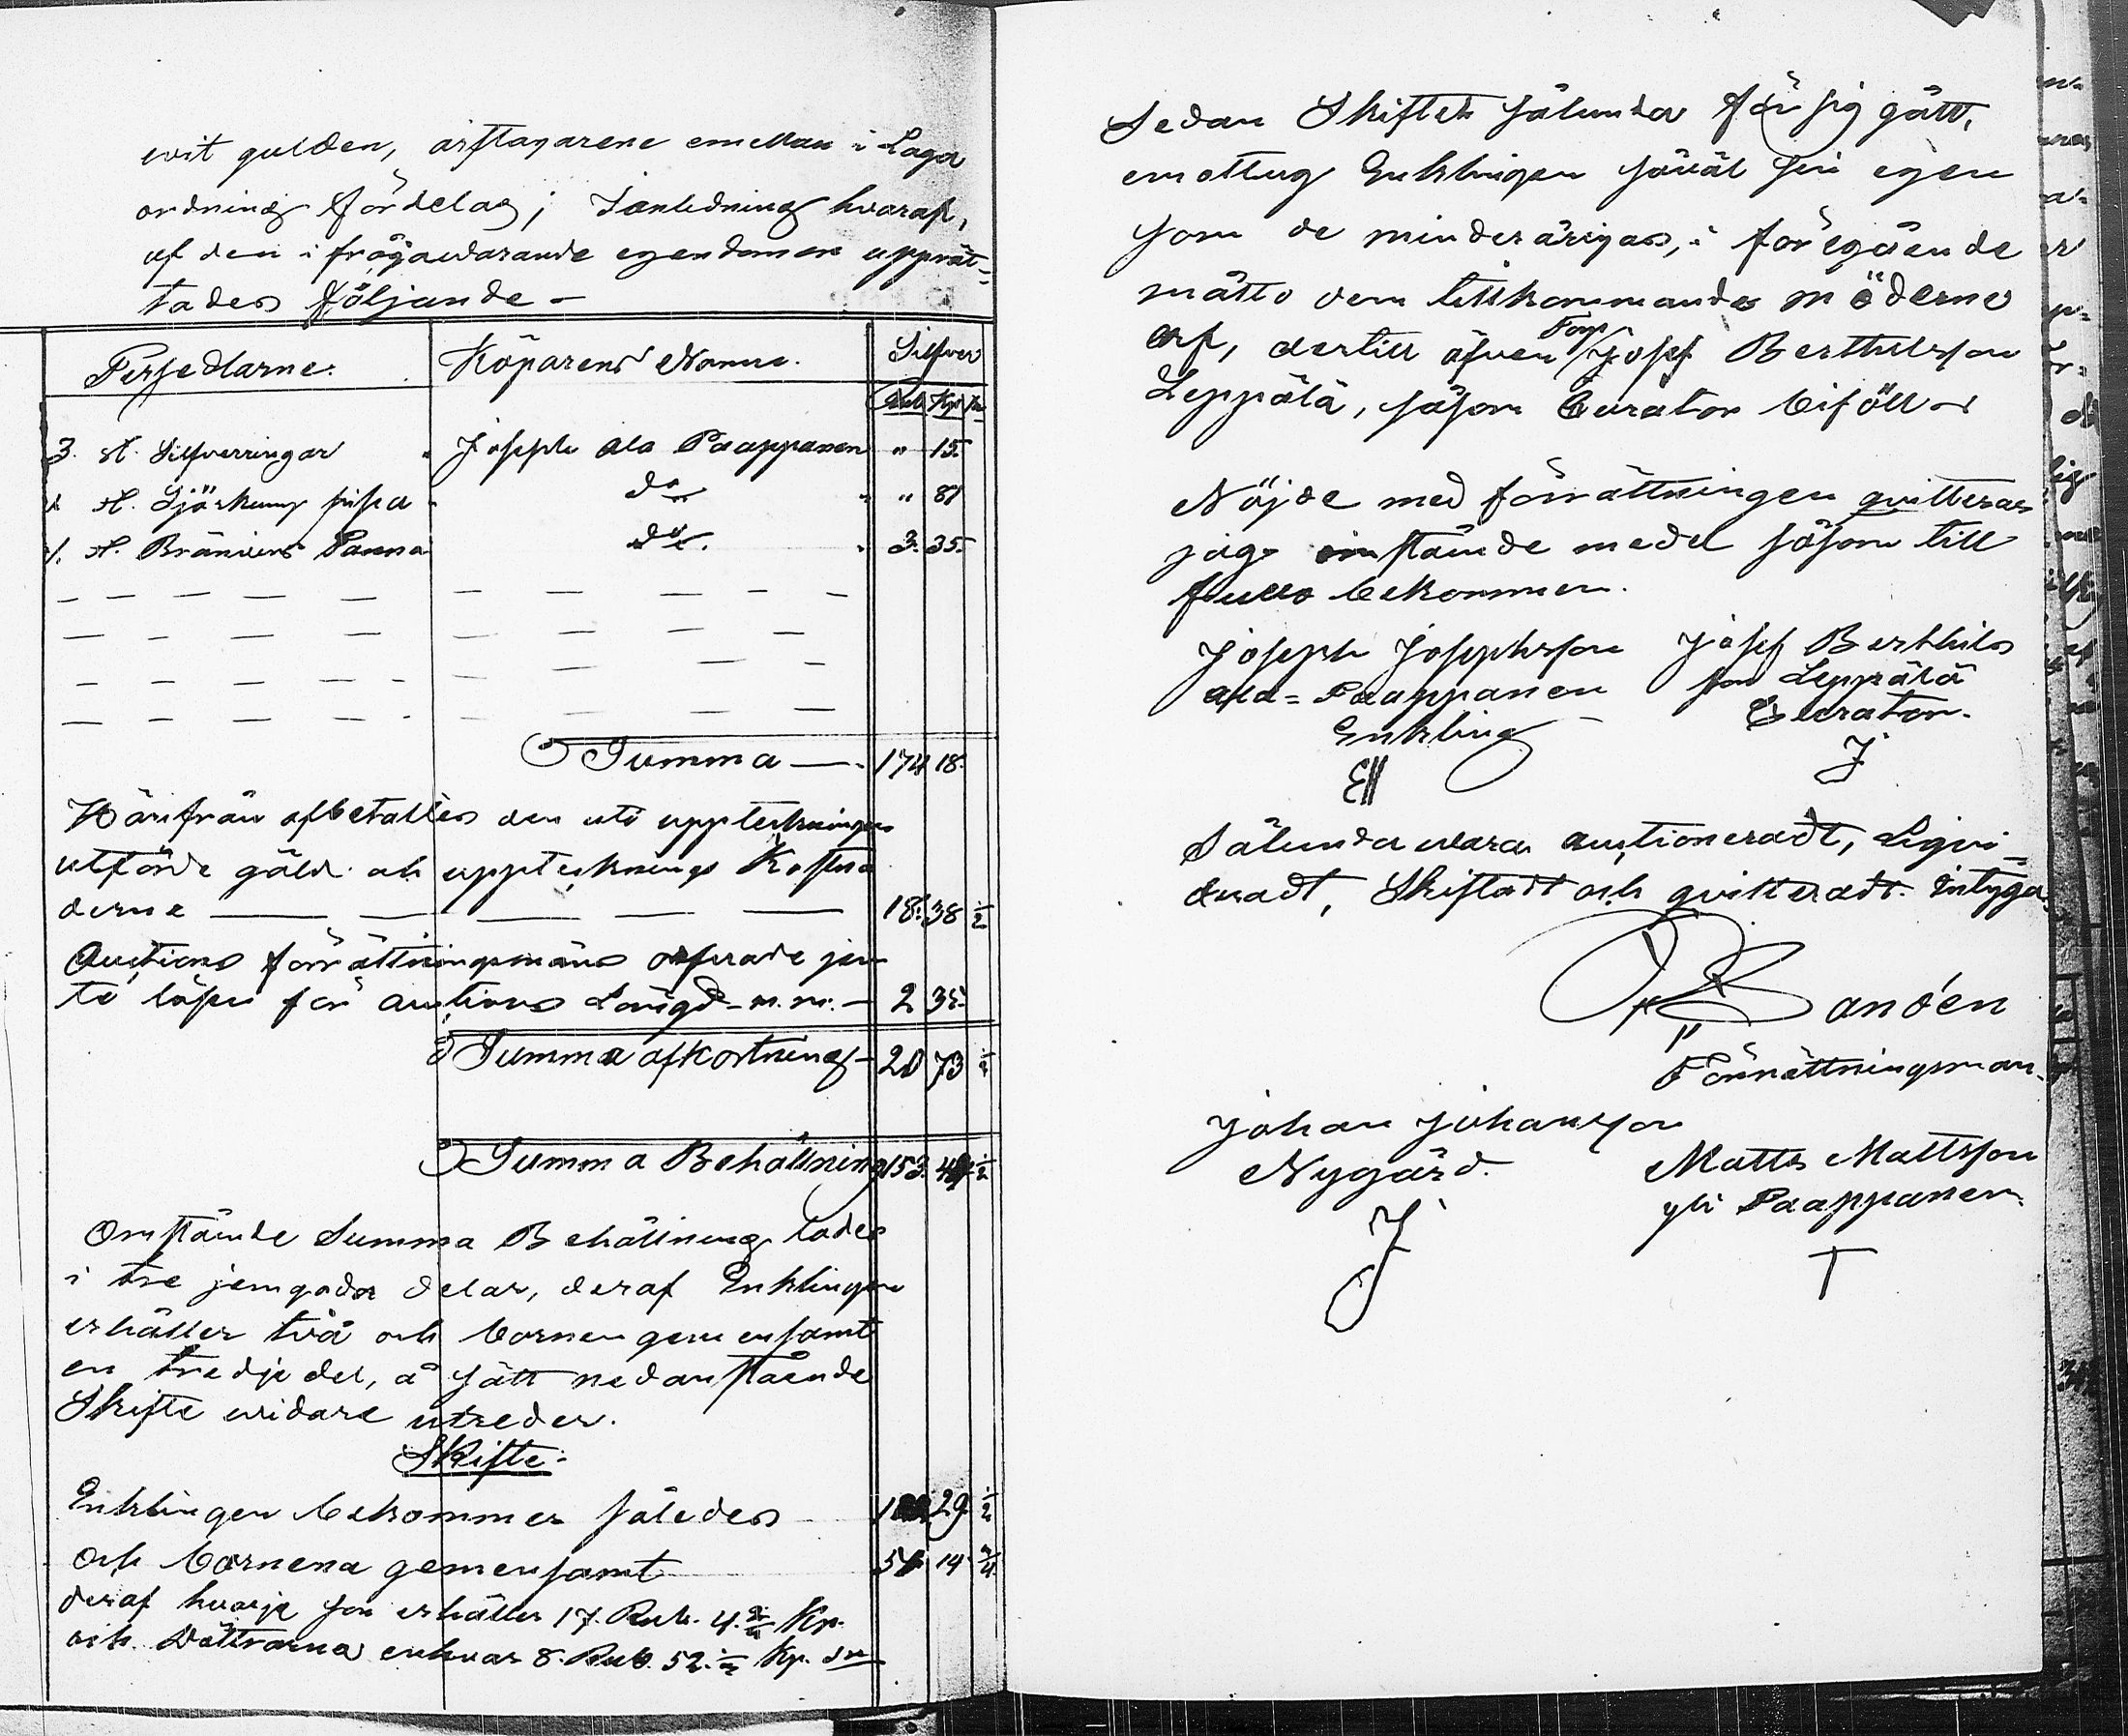 wit gulden, arftagarene emellan i Laga
ordning fördelas; I anledning hvaraf,
af den i frågawarande egendomen upprät-
tades följande -
Persedlarne. Köparens Namn. Silfver
Rub Kop
3. st. Silfverringar " Joseph ala Paappanen " 15.
st. Sjöskums pipa - do " " 81
1. st. Bränvins Panna do. " 3. 35.
Summa — 174 18.
Härifrån afbetaltes den uti uppteckningen
utförde gäld och upptecknings Kostna
derne — — — — — 18. 38 1/2
Auctions förrättningsmäns arfvode jem
te lösen för auctions Längd m.m. - 2 35.
Summa afkortning - 20 73 1/2
Summa Behållning 153. 44 1/2
Omstående Summa Behållning lades
i tre jemgoda delar, deraf Enklingen
erhåller två och barnen gemensamt
en tredjedel, å sätt nedanstående
Skifte widare utreder.
Skifte.
Enklingen bekommer således 102 29 1/2
och barnena gemensamt 51 14 3/4
deraf hvarje son erhåller 17. Rub. 4. Kp.
och Döttrarna enhvar 8. Rub. 52. 1/2 Kp. Sr
Sedan Skiftet sålunda för sig gått,
emottug Enklingen såväl sin egen
som de minderårigas, i föregående
måtto dem tillkommande möderne
Arf, dertill äfven Torp Josef Berthilsson
Leppälä, såsom Curator biföll
Nöjde med förrättningen qvitteras
jag omstående medel såsom till
fullo bekommen.
Joseph Josephsson Josef Berthils
ala=Paappanen son Leppälä
Enkling Curator.
J
Sålunda wara auctioneradt, Liqvi-
deradt, Skiftadt och qvitteradt. intyga.
andén
Förrättningsman.
Johan Johansson
Nygård. Matts Mattsson
yli Paappanen
J T